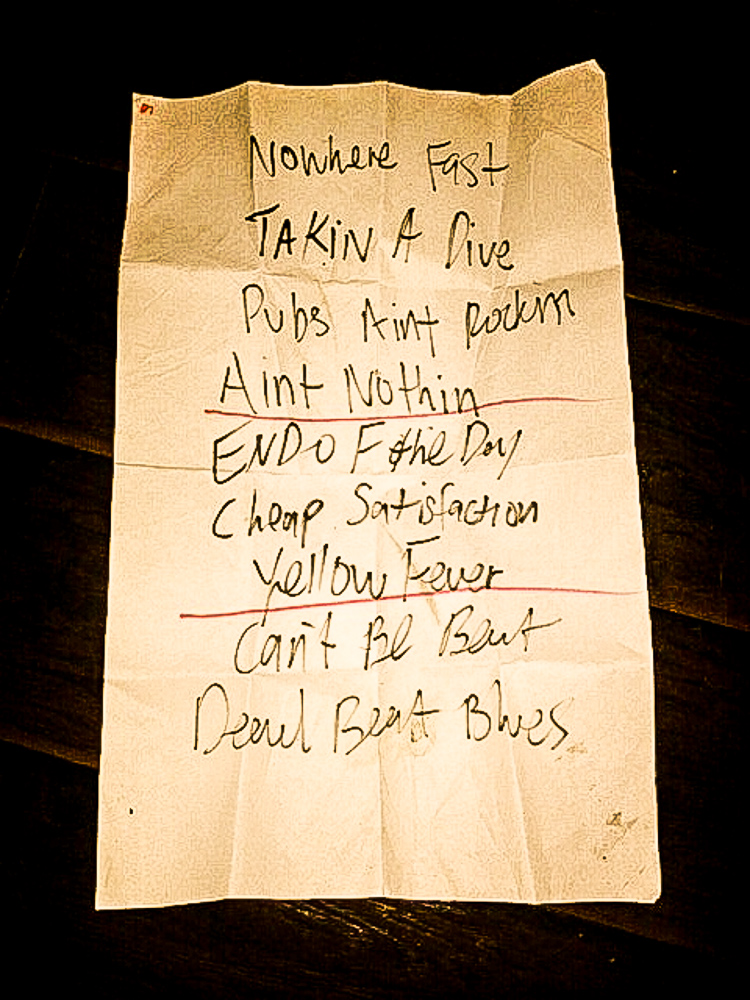 Nowhere Fast
TAKIN A Dive
Pubs Aint Rockin
Aint Nothin
ENDO F the Day
Cheap Satisfaction
Yellow Fever
Can't Be Beat
Dead Beat Blues